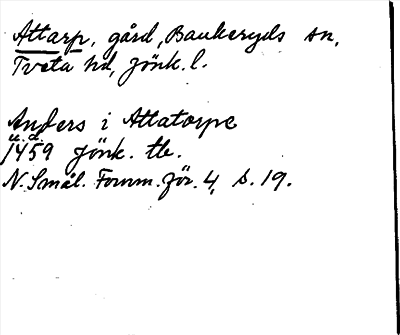 Attarp, gård, Bankeryds sn,
Tveta hd, Jönk. l.
Anders i Attatorpe
u.d.
1459 Jönk. tb.
N. Smål. Fornm.för. 4, s. 19.